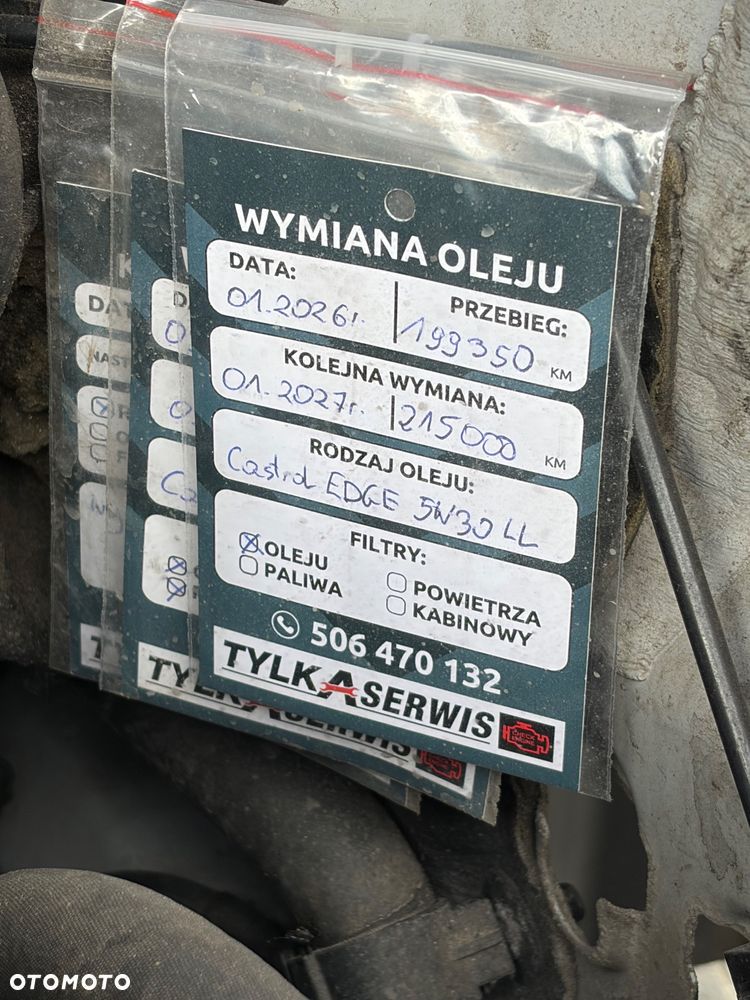 WYMIANA OLEJU
DATA: PRZEBIEG:
01.2026r. 199350 KM
KOLEJNA WYMIANA:
01.2027r. 215000 KM
RODZAJ OLEJU:
Castrol EDGE 5W30 LL
FILTRY:
OLEJU
PALIWA
POWIETRZA
KABINOWY
506 470 132
TYLKA SERWIS
CHECK ENGINE
OTOMOTO